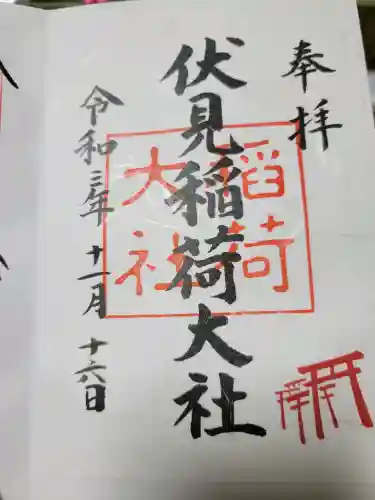 奉拝
伏見稲荷大社
稲荷
大社
令和三年十一月十六日